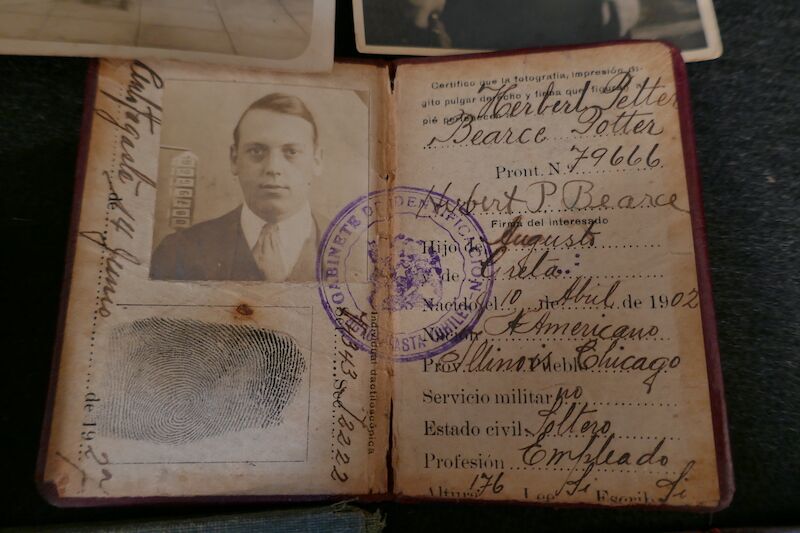 Antofagasta 14 Junio
de
de 192
Individual dactiloscópica
Sec. 2222
GABINETE DE IDENTIFICACION
CHILE
Certifico que la fotografía, impresión dí-
gito pulgar derecho y firma que figuran a
pié pertenecen
Herbert Petter
Bearce Potter
Pront. N.º 79666
Herbert P. Bearce
Firma del interesado
Hijo de Augusto
y de Greta
Nacido el 10 de Abril de 1902
Nación A Americano
Prov. Illinois Pueblo Chicago
Servicio militar no
Estado civil Soltero
Profesión Empleado
Altura 176 Lee Si Escribe Si